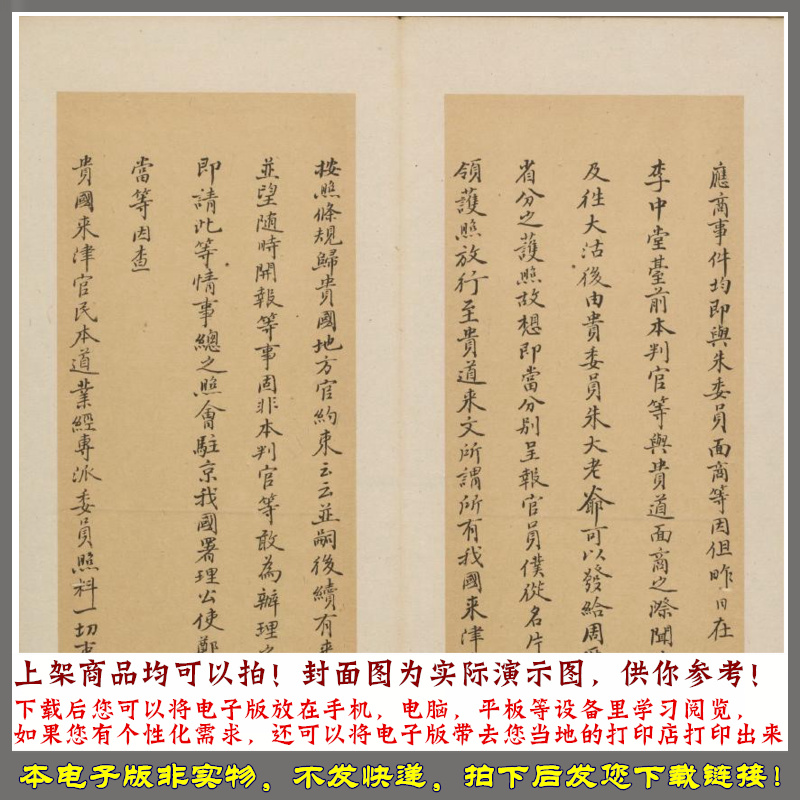 應商事件均即與朱委員面商等因但昨日在
李中堂臺前本判官等與貴道面商之際聞
及往大沽後由貴委員朱大老爺可以發給周
省分之護照故想即當分別呈報官員僕從名片
領護照放行至貴道来文所謂所有我國来津
按照條規歸貴國地方官約束云云並嗣後續有来
並望随時開報等事固非本判官等敢為辦理之
即請此等情事總之照會駐京我國署理公使鄭
當等因查
貴國来津官民本道業經專派委員照料一切事
上架商品均可以拍！封面图为实际演示图，供你参考！
下载后您可以将电子版放在手机，电脑，平板等设备里学习阅览，
如果您有个性化需求，还可以将电子版带去您当地的打印店打印出来
本电子版非实物，不发快递，拍下后发您下载链接！